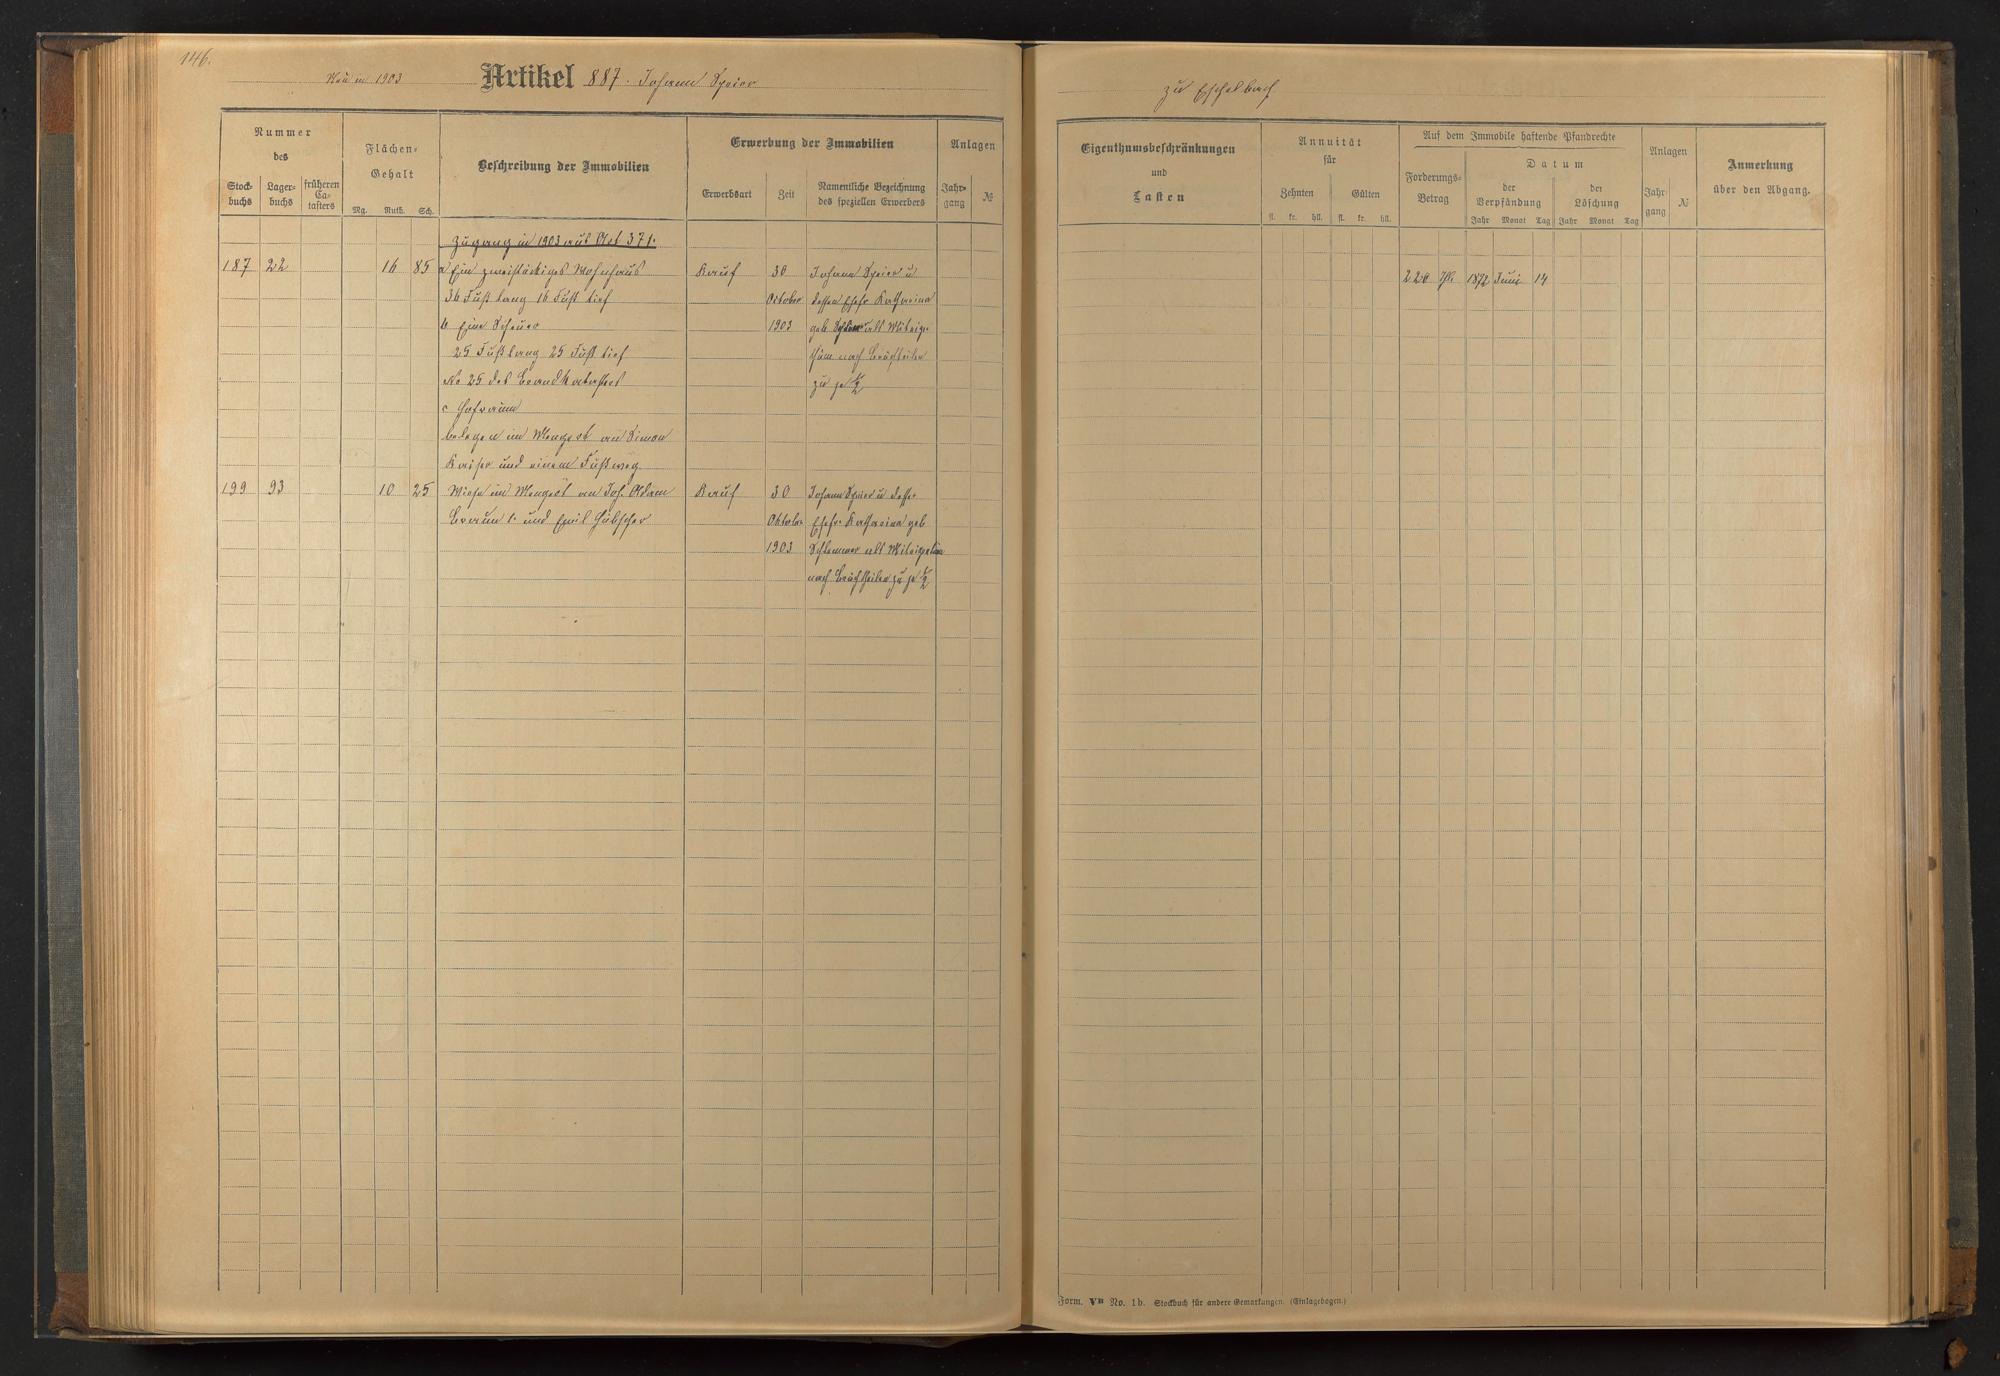 146.
Neu in 1903 Artikel 887. Johann Speier
Nummer
des
Stock-
buchs
Lager-
buchs
früheren
Ca-
tasters
Flächen-
Gehalt
Mg. Ruth. Sch.
Beschreibung der Immobilien
Erwerbung der Immobilien
Erwerbsart
Zeit
Namentliche Bezeichnung
des speziellen Erwerbers
Anlagen
Jahr-
gang
№
Zugang in 1903 aus Art 371.
187 22 16 85 a Ein zweistöckiges Wohnhaus Kauf 30 Johann Speier u
36 Fuß lang 16 Fuß tief October dessen Ehefr Katharina
b Eine Scheuer 1903 geb als Miteige-
25 Fuß lang 25 Fuß tief thüm nach Bruchteilen
No 25 des Brandkatasters zu je ½
c Hofraum
belegen im Mengest an Simon
Kaiser und einem Fußweg
199 93 10 25 Wiese im Mengest an Joh. Adam Kauf 30 Johann Speier u dessen
Braun 1. und Emil Hübscher Oktober Ehefr. Katharina geb
1903 Schlemmer als Miteigentüm
nach Bruchtheilen zu je ½
zu Eschelbach
Eigenthumsbeschränkungen
und
Lasten
Annuität
für
Zehnten
Gülten
fl. kr. hll. fl. kr. hll.
Auf dem Immobile haftende Pfandrechte
Forderungs-
Betrag
Datum
der
Verpfändung
der
Löschung
Jahr Monat Tag Jahr Monat Tag
Anlagen
Jahr-
gang
№
Anmerkung
über den Abgang.
220 Thl. 1872 Juni 14
Form. VII No. 1b. Stockbuch für andere Gemarkungen. (Einlagebogen.)